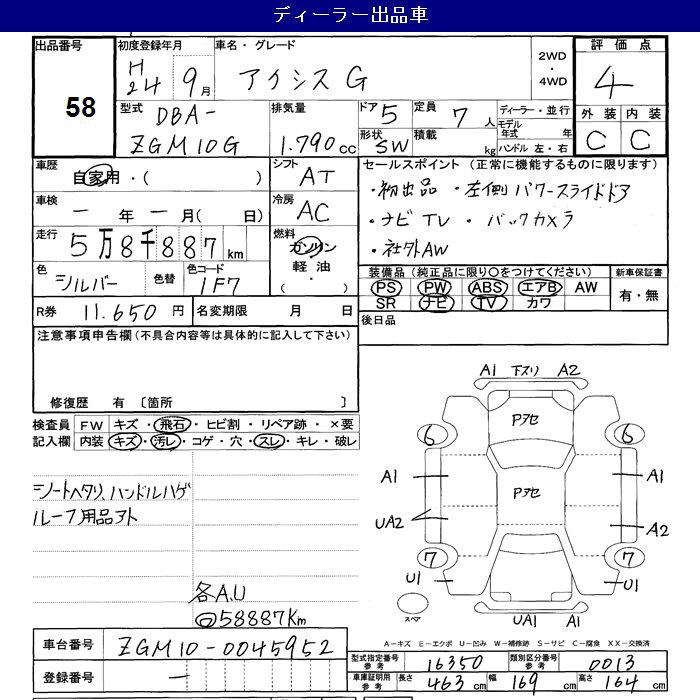 ディーラー出品車
出品番号
58
初度登録年月
H24 9月
車名・グレード
アイシス G
2WD・4WD
評価点
4
外装 内装
C C
型式
DBA-
ZGM10G
排気量
1.790cc
ドア 5
定員 7人
形状 SW
積載 kg
ディーラー・並行
モデル年式 年
ハンドル 左・右
車歴
自家用・( )
シフト AT
車検
一年一月( 日)
冷房 AC
走行
5万8千887km
燃料
ガソリン
軽油・
( )
色
シルバー
色替
色コード
1F7
セールスポイント (正常に機能するものに限ります)
・初出品 ・左側パワースライドドア
・ナビTV ・バックカメラ
・社外AW
装備品(純正品に限り○をつけてください)
PS PW ABS エアB AW
SR ナビ TV カワ
新車保証書
有・無
R券 11.650円
名変期限 月 日
後日品
注意事項申告欄(不具合内容等は具体的に記入して下さい)
修復歴 有 〔箇所 〕
検査員記入欄
FW キズ・飛石・ヒビ割・リペア跡・×要
内装 キズ・汚レ・コゲ・穴・スレ・キレ・破レ
シートヘタリ、ハンドルハゲ
ルーフ用品アト
各A.U
58887Km
A1 下スリ A2
Pアセ
6 6
A1 Pアセ A1
UA2 A2
7 7
U1 U1
スペア
UA1 A1
A-キズ E-エクボ U-凹み W-補修跡 S-サビ C-腐食 XX-交換済
車台番号 ZGM10-0045952
登録番号 一
型式指定番号 参考 16350
類別区分番号 参考 0013
車庫証明用 参考 長さ 463cm 幅 169cm 高さ 164cm